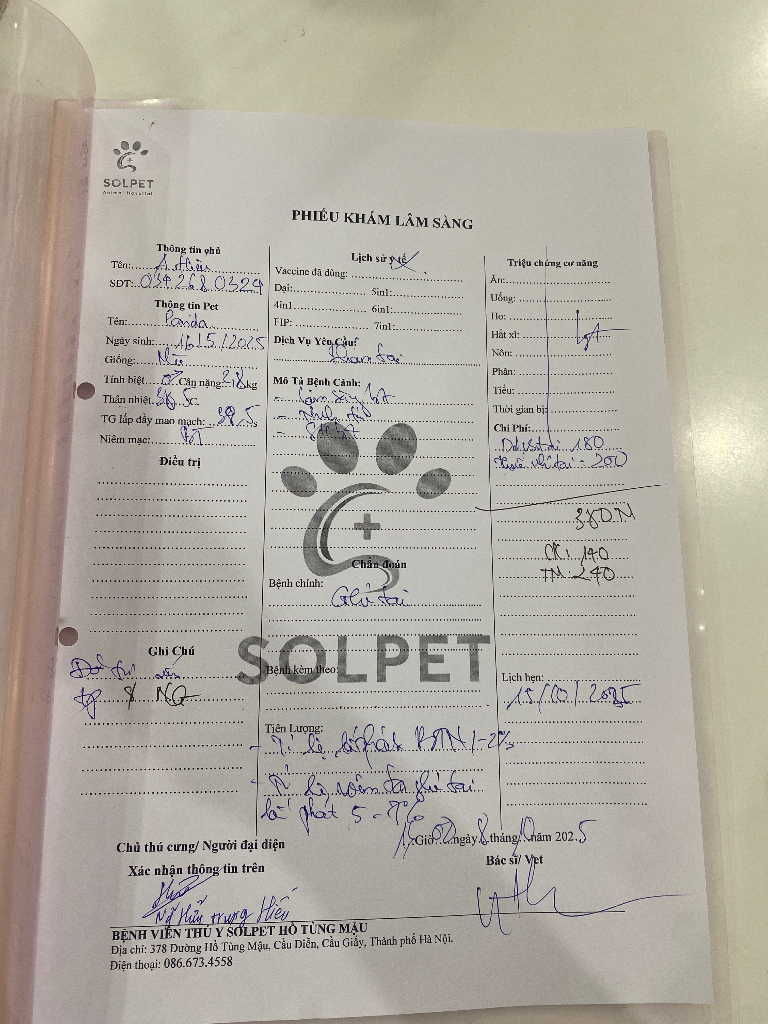 SOLPET
Animal Hospital
PHIẾU KHÁM LÂM SÀNG
Thông tin chủ
Tên: A Hiếu
SDT: 034 268 0329
Thông tin Pet
Tên: Panda
Ngày sinh: 16/5/2025
Giống:
Tính biệt: ♂ Cân nặng: kg
Thân nhiệt: 38,5c
TG lấp đầy mao mạch: 39,5s
Niêm mạc: BT
Điều trị
Ghi Chú
8 NG
Lịch sử y tế
Vaccine đã dùng:
Dại: 5in1:
4in1 6in1:
FIP: 7in1:
Dịch Vụ Yêu Cầu
Khám tai
Mô Tả Bệnh Cảnh:
- Lâm sàng BT
Chẩn đoán
Bệnh chính:
Ghẻ tai
SOLPET
Bệnh kèm theo:
Tiên Lượng:
- Tỉ lệ tái phát BTN 1-2%
- Tỉ lệ viêm da ghẻ tai
tái phát 5 - 7%
Triệu chứng cơ năng
Ăn:
Uống:
Ho:
Hắt xì: BT
Nôn:
Phân:
Tiểu:
Thời gian bị:
Chi Phí:
180
tai - 200
380N
CK: 140
TM: 240
Lịch hẹn:
15/10/2025
Giờ ngày 8 tháng 10 năm 2025
Chủ thú cưng/ Người đại diện
Xác nhận thông tin trên
Bác sĩ/ Vet
Trung Hiếu
BỆNH VIỆN THÚ Y SOLPET HỒ TÙNG MẬU
Địa chỉ: 378 Đường Hồ Tùng Mậu, Cầu Diễn, Cầu Giấy, Thành phố Hà Nội.
Điện thoại: 086.673.4558